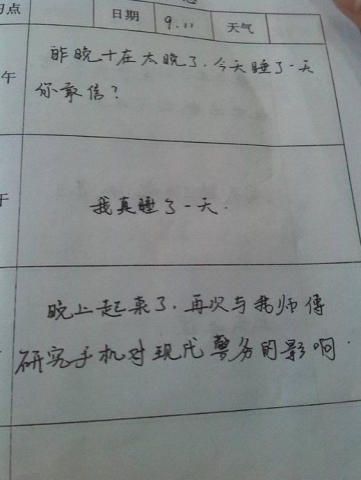 习点 日期 9.11 天气
午 昨晚干在太晚了，今天睡了一天
你敢信？
午 我真睡了一天.
晚上起来了，再次与我师傅
研究手机对现代警务的影响.